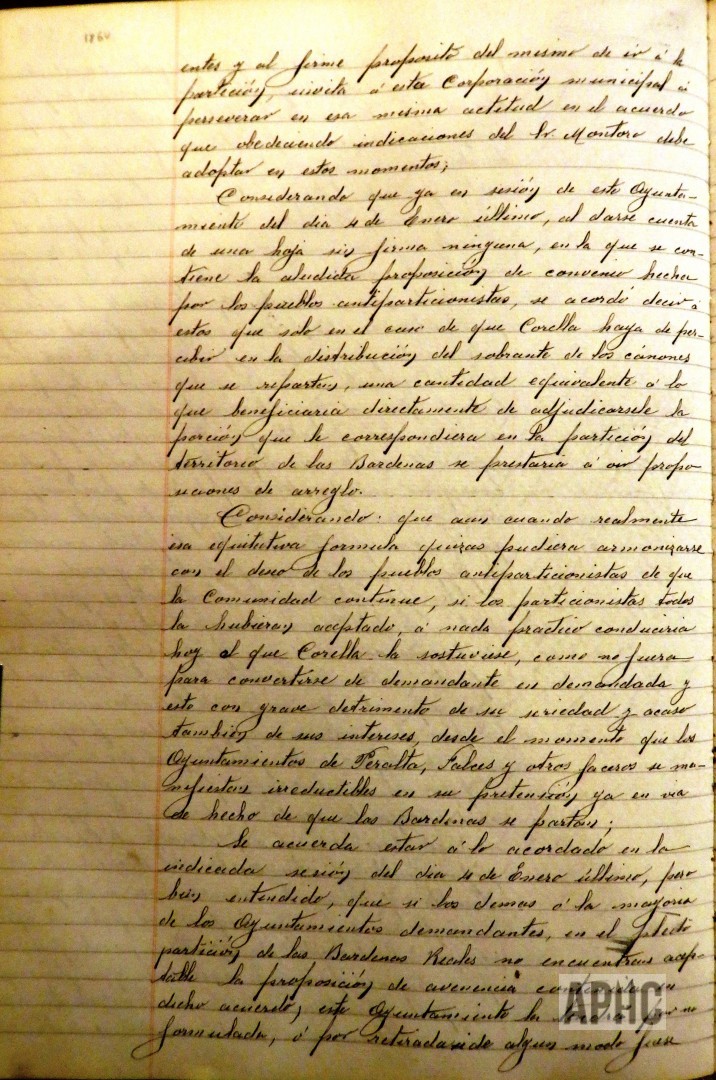 1860
entes y al firme proposito del mismo de ir á la
partición, invita á esta Corporación municipal á
perseverar en esa misma actitud en el acuerdo
que obedeciendo indicaciones del Sr. Montoro debe
adoptar en estos momentos;
Considerando que ya en sesión de este Ayunta-
miento del dia 4 de Enero último, al darse cuenta
de una hoja sin firma ninguna, en la que se con-
tiene la aludida proposición de convenio hecha
por los pueblos antiparticionistas, se acordó decir á
estos que solo en el caso de que Corella haya de per-
cibir en la distribución del sobrante de los cánones
que se reparten, una cantidad equivalente á lo
que beneficiaria directamente de adjudicarsele la
porción que le correspondiera en la partición del
territorio de las Bardenas se prestaria á oir propo-
siciones de arreglo.
Considerando: que aun cuando realmente
esa equitativa formula quizas pudiera armonizarse
con el deseo de los pueblos antiparticionistas de que
la Comunidad continue, si los particionistas todos
la hubieran aceptado, á nada practico conduciria
hoy el que Corella la sostuviese, como no fuera
para convertirse de demandante en demandada y
esto con grave detrimento de su seriedad y acaso
también de sus intereses, desde el momento que los
Ayuntamientos de Peralta, Falces y otros faceros se ma-
nifiestan irreductibles en su pretención ya en via
de hecho de que las Bardenas se partan;
Se acuerda estar á lo acordado en la
indicada sesión del dia 4 de Enero último, pero
bien entendido, que si los demas ó la mayoria
de los Ayuntamientos demandantes, en el pleito
partición de las Bardenas Reales no encuentran acep-
table la proposición de avenencia en
dicho acuerdo, este Ayuntamiento la por no
formulada, ó por retirada si de algun modo fuese
APHC